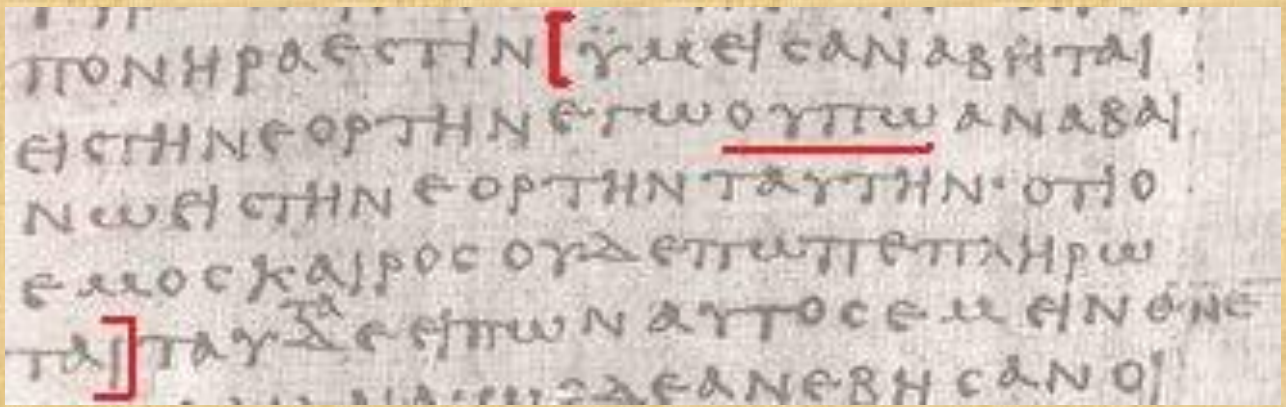 ΠΟΝΗΡΑΕϹΤΙΝ[ΫΜΕΙϹΑΝΑΒΗΤΑΙ
ΕΙϹΤΗΝΕΟΡΤΗΝΕΓΩΟΥΠΩΑΝΑΒΑΙ
ΝΩΕΙϹΤΗΝΕΟΡΤΗΝΤΑΥΤΗΝ·ΟΤΙΟ
ΕΜΟϹΚΑΙΡΟϹΟΥΔΕΠΩΠΕΠΛΗΡΩ
ΤΑΙ]ΤΑΥΤΑΔΕΕΙΠΩΝΑΥΤΟϹΕΜΕΙΝΕΝΕ
ΔΕΑΝΕΒΗϹΑΝΟΙ